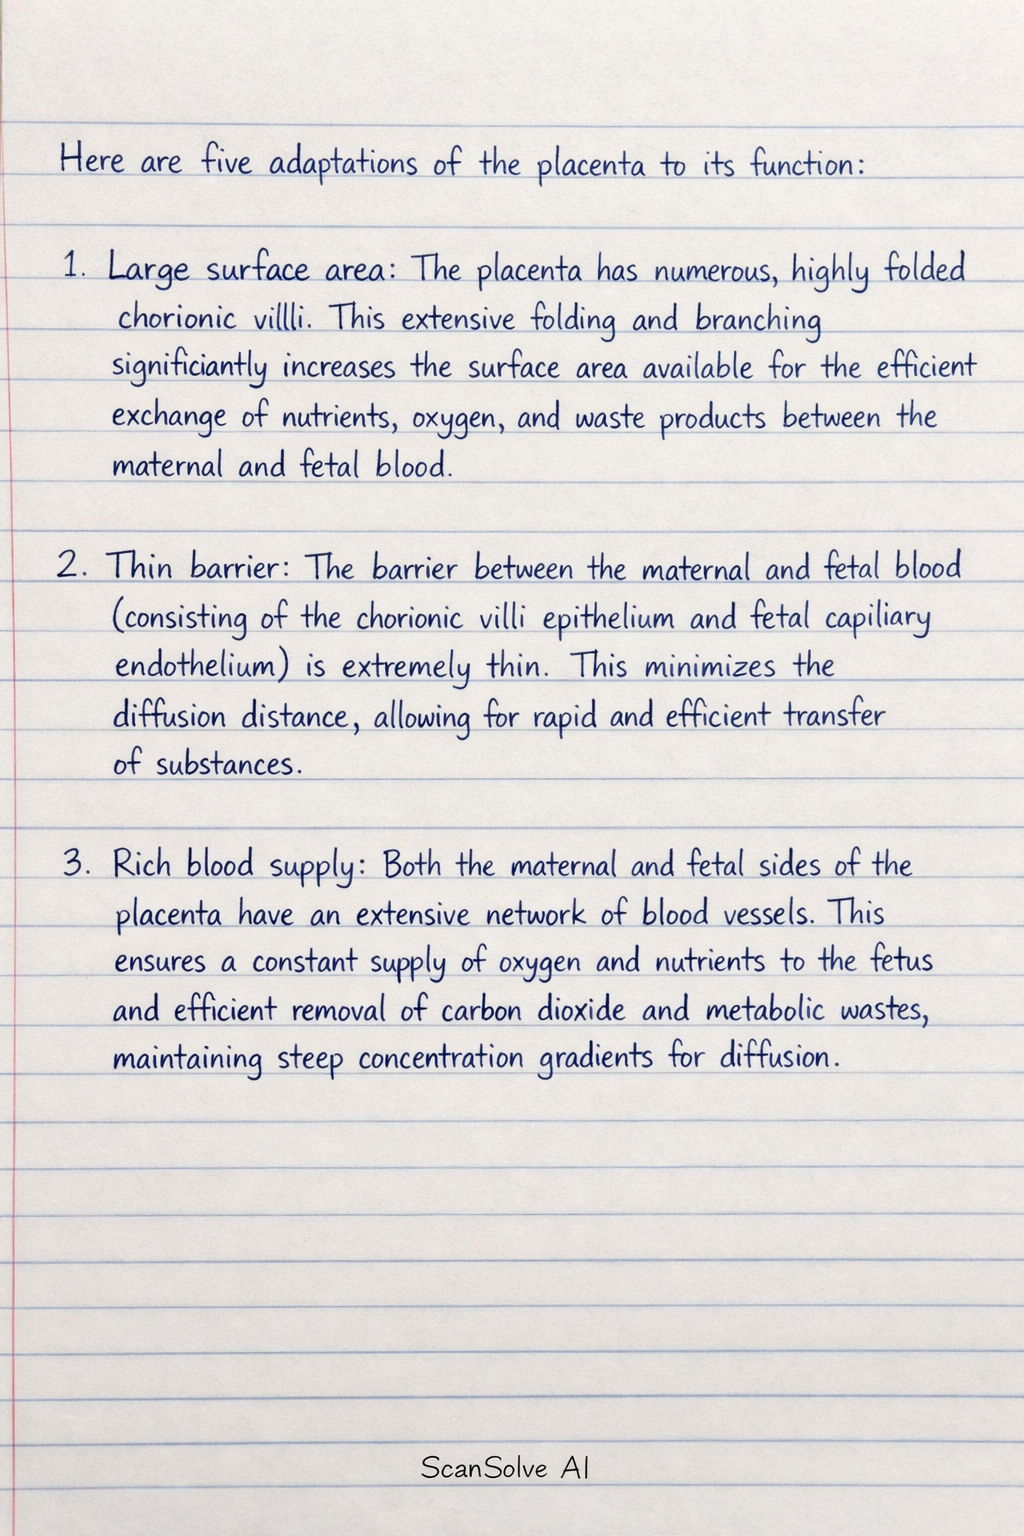 Here are five adaptations of the placenta to its function:
1. Large surface area: The placenta has numerous, highly folded
chorionic villli. This extensive folding and branching
significiantly increases the surface area available for the efficient
exchange of nutrients, oxygen, and waste products between the
maternal and fetal blood.
2. Thin barrier: The barrier between the maternal and fetal blood
(consisting of the chorionic villi epithelium and fetal capiliary
endothelium) is extremely thin. This minimizes the
diffusion distance, allowing for rapid and efficient transfer
of substances.
3. Rich blood supply: Both the maternal and fetal sides of the
placenta have an extensive network of blood vessels. This
ensures a constant supply of oxygen and nutrients to the fetus
and efficient removal of carbon dioxide and metabolic wastes,
maintaining steep concentration gradients for diffusion.
ScanSolve AI